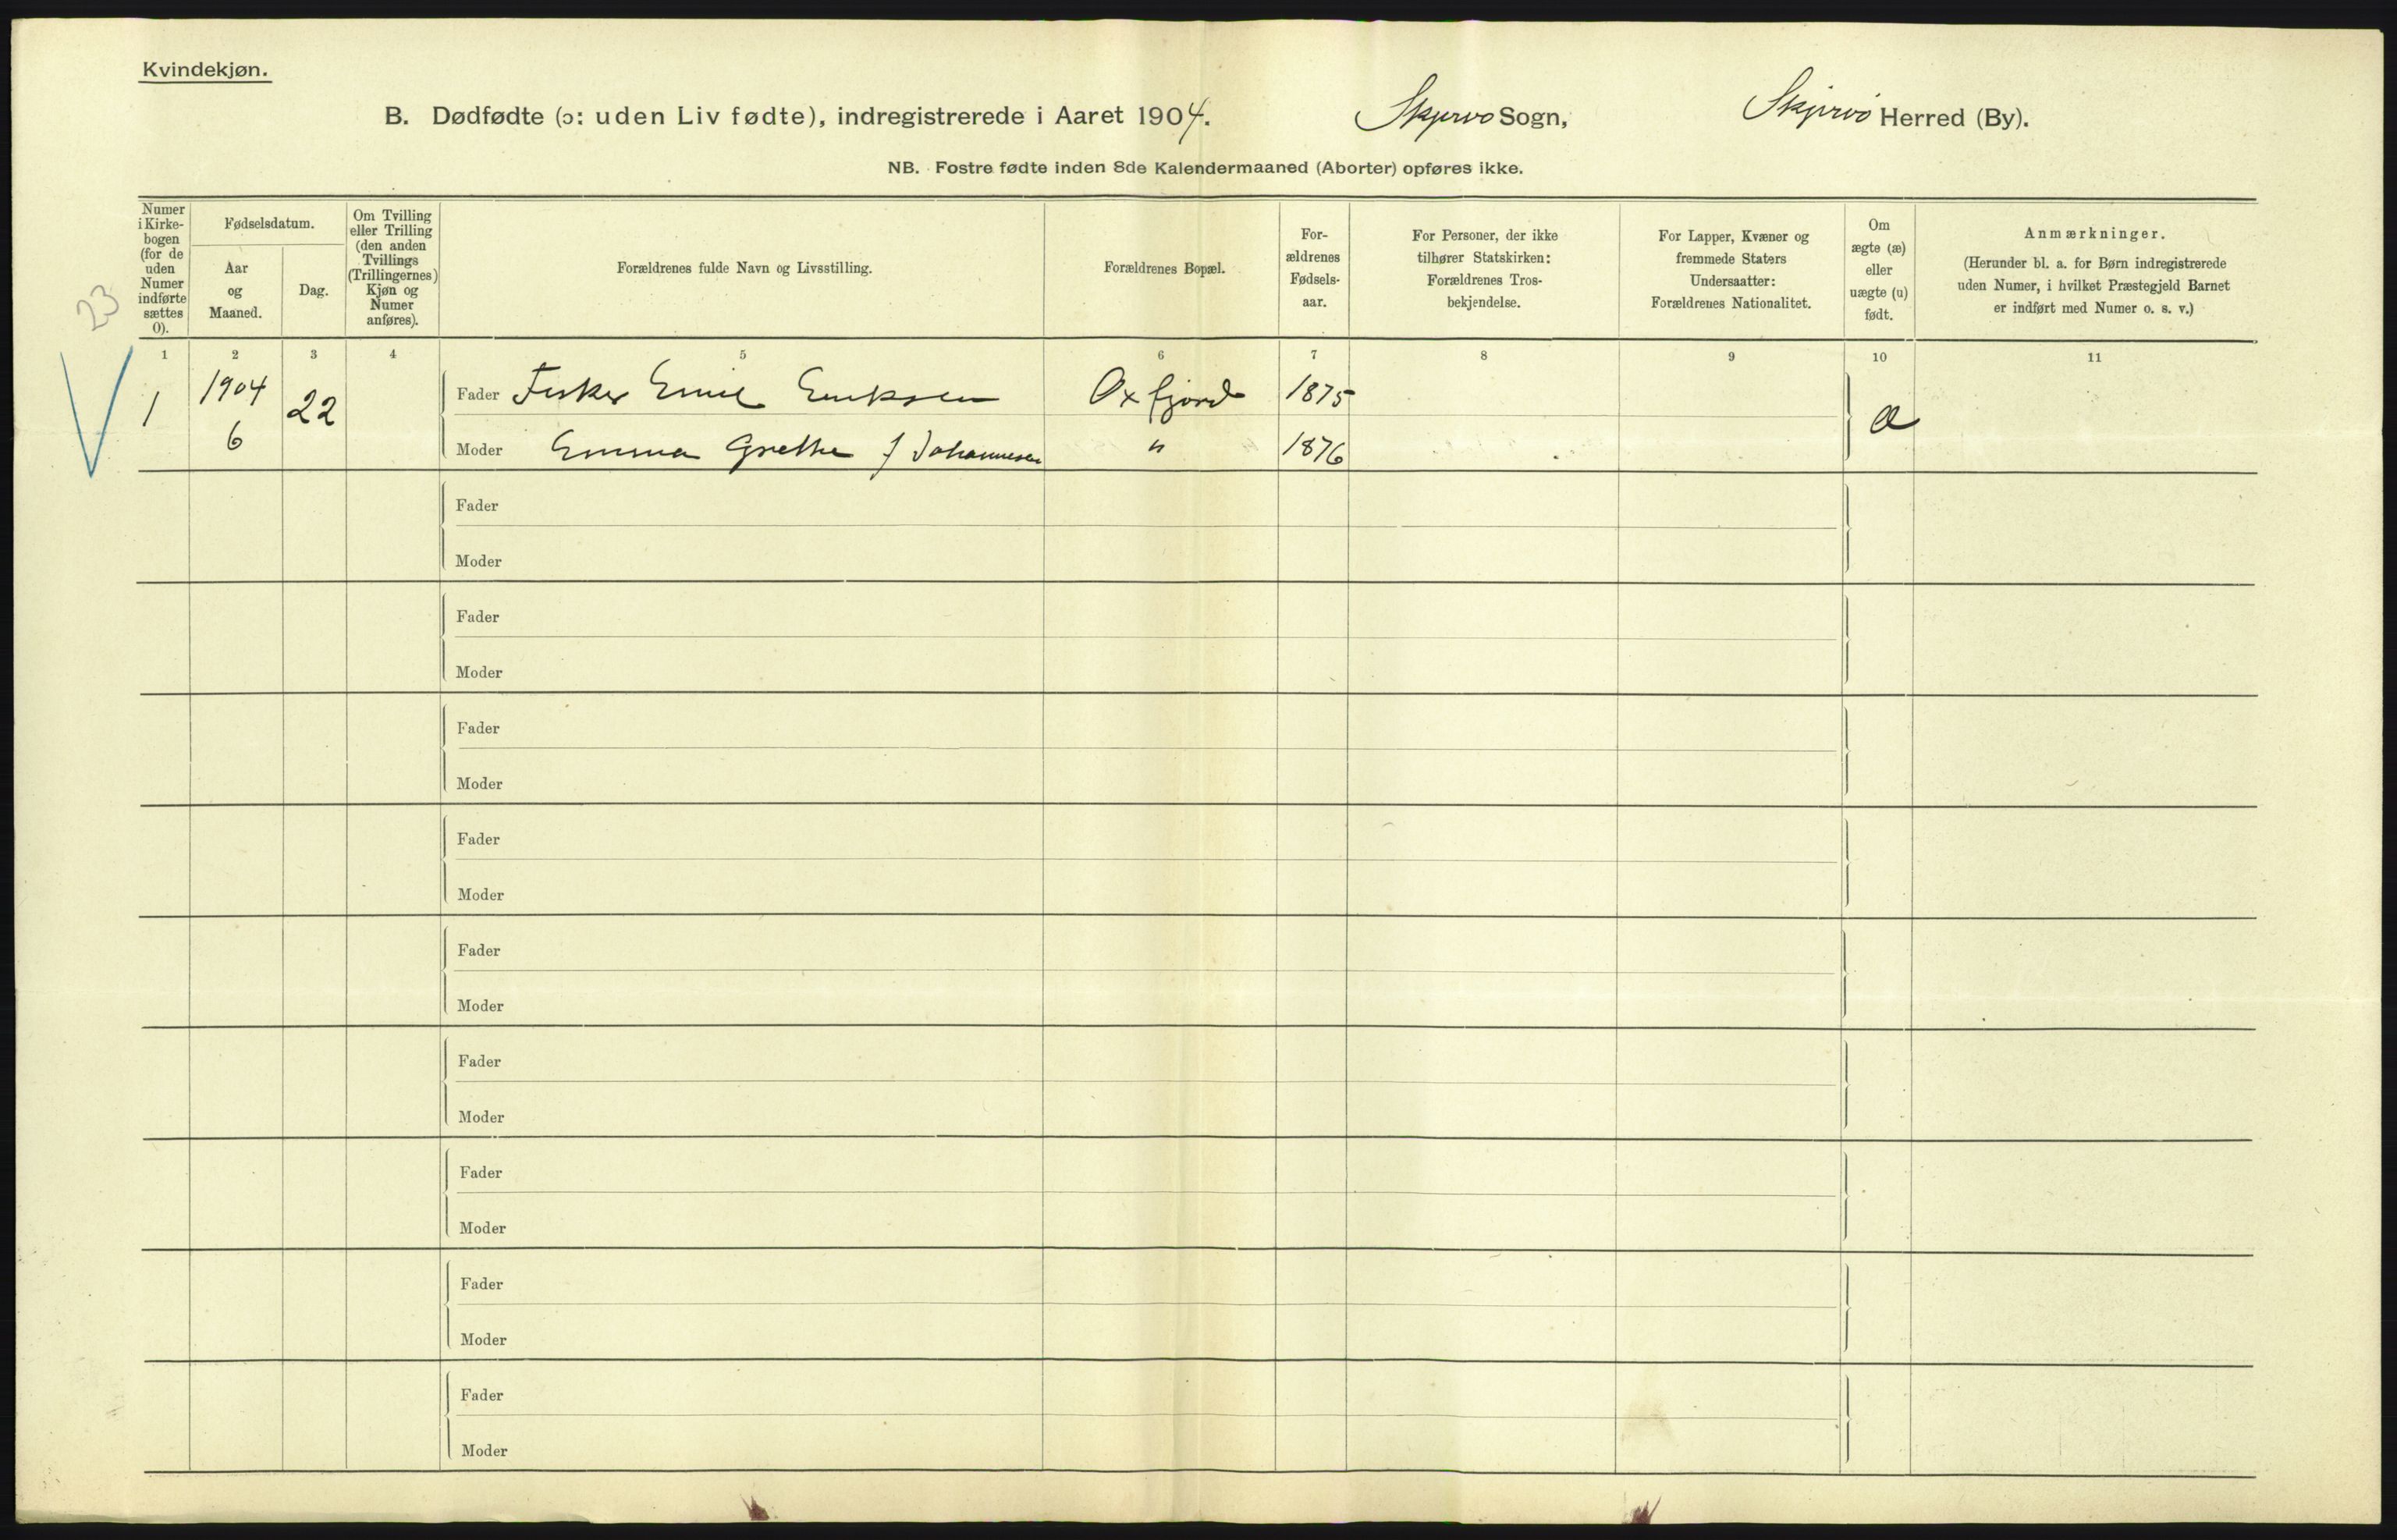 Kvindekjøn.
B. Dødfødte (ɔ: uden Liv fødte), indregistrerede i Aaret 1904. Skjervø Sogn, Skjervø Herred (By).
NB. Fostre fødte inden 8de Kalendermaaned (Aborter) opføres ikke.
23
Numer
i Kirke-
bogen
(for de
uden
Numer
indførte
sættes
0).
Fødselsdatum.
Aar
og
Maaned.
Dag.
Om Tvilling
eller Trilling
(den anden
Tvillings
(Trillingernes)
Kjøn og
Numer
anføres).
Forældrenes fulde Navn og Livsstilling.
Forældrenes Bopæl.
For-
ældrenes
Fødsels-
aar.
For Personer, der ikke
tilhører Statskirken:
Forældrenes Tros-
bekjendelse.
For Lapper, Kvæner og
fremmede Staters
Undersaatter:
Forældrenes Nationalitet.
Om
ægte (æ)
eller
uægte (u)
født.
Anmærkninger.
(Herunder bl. a. for Børn indregistrerede
uden Numer, i hvilket Præstegjeld Barnet
er indført med Numer o. s. v.)
1 2 3 4 5 6 7 8 9 10 11
1 1904 22 Fader Fisker Emil Eriksen Oxfjord 1875 æ
6 Moder Emma Grethe f Johannesen " 1876
Fader
Moder
Fader
Moder
Fader
Moder
Fader
Moder
Fader
Moder
Fader
Moder
Fader
Moder
Fader
Moder
Fader
Moder